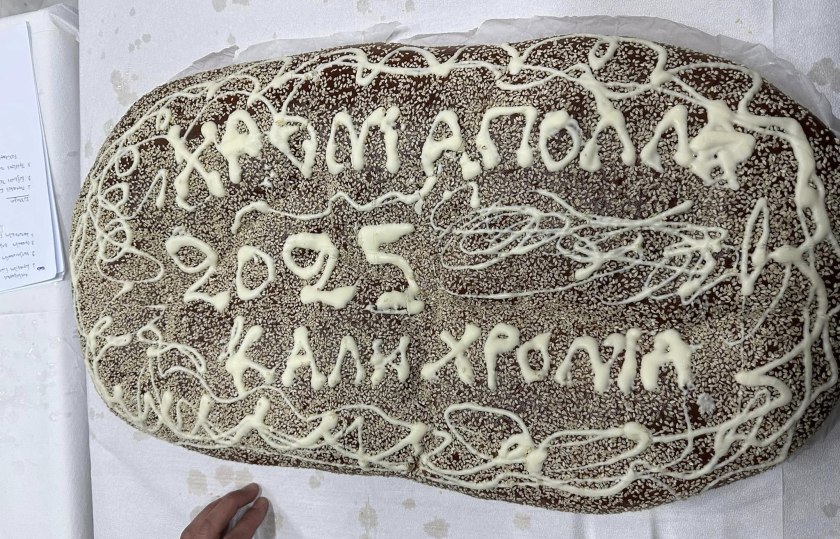 ΧΡΟΝΙΑ ΠΟΛΛΑ
2025
ΚΑΛΗ ΧΡΟΝΙΑ